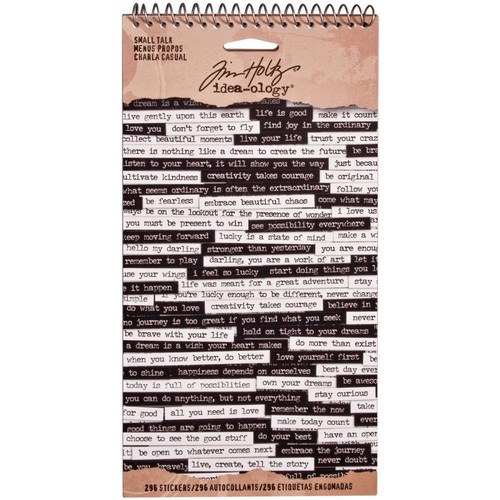 SMALL TALK
MENUS PROPOS
CHARLA CASUAL
Tim Holtz
idea-ology®
a dream is a wish
live gently upon this earth life is good make it count
love you don't forget to fly find joy in the ordinary
collect beautiful moments live your life trust your craz
there is nothing like a dream to create the future be bra
isten to your heart, it will show you the way just beca
ultivate kindness creativity takes courage be original
what seems ordinary is often the extraordinary follow you
be fearless embrace beautiful chaos come what may
ways be on the lookout for the presence of wonder i love us
you must be present to win see possibility everywhere
keep moving forward lucky is a state of mind make a wi
hello my darling stronger than yesterday you are enoug
remember to play darling, you are a work of art let it
use your wings i feel so lucky start doing things you l
e it happen life was meant for a great adventure stay
simple if you're lucky enough to be different, never chang
do what you love creativity takes courage believe in
no journey is too great if you find what you seek never
be brave with your life hold on tight to your dreams
a dream is a wish your heart makes do more than exist
when you know better, do better love yourself first be
to shine happiness depends on ourselves best day ever
today is full of possibilities own your dreams be aweso
you can do anything, but not everything stay curious
for good all you need is love remember the now take
good things are going to happen make today count ever
choose to see the good stuff do your best have an open
be open to whatever comes next embrace the journey
e you bravely live, create, tell the story never doubt yo
296 STICKERS/296 AUTOCOLLANTS/296 ETIQUETAS ENGOMADAS